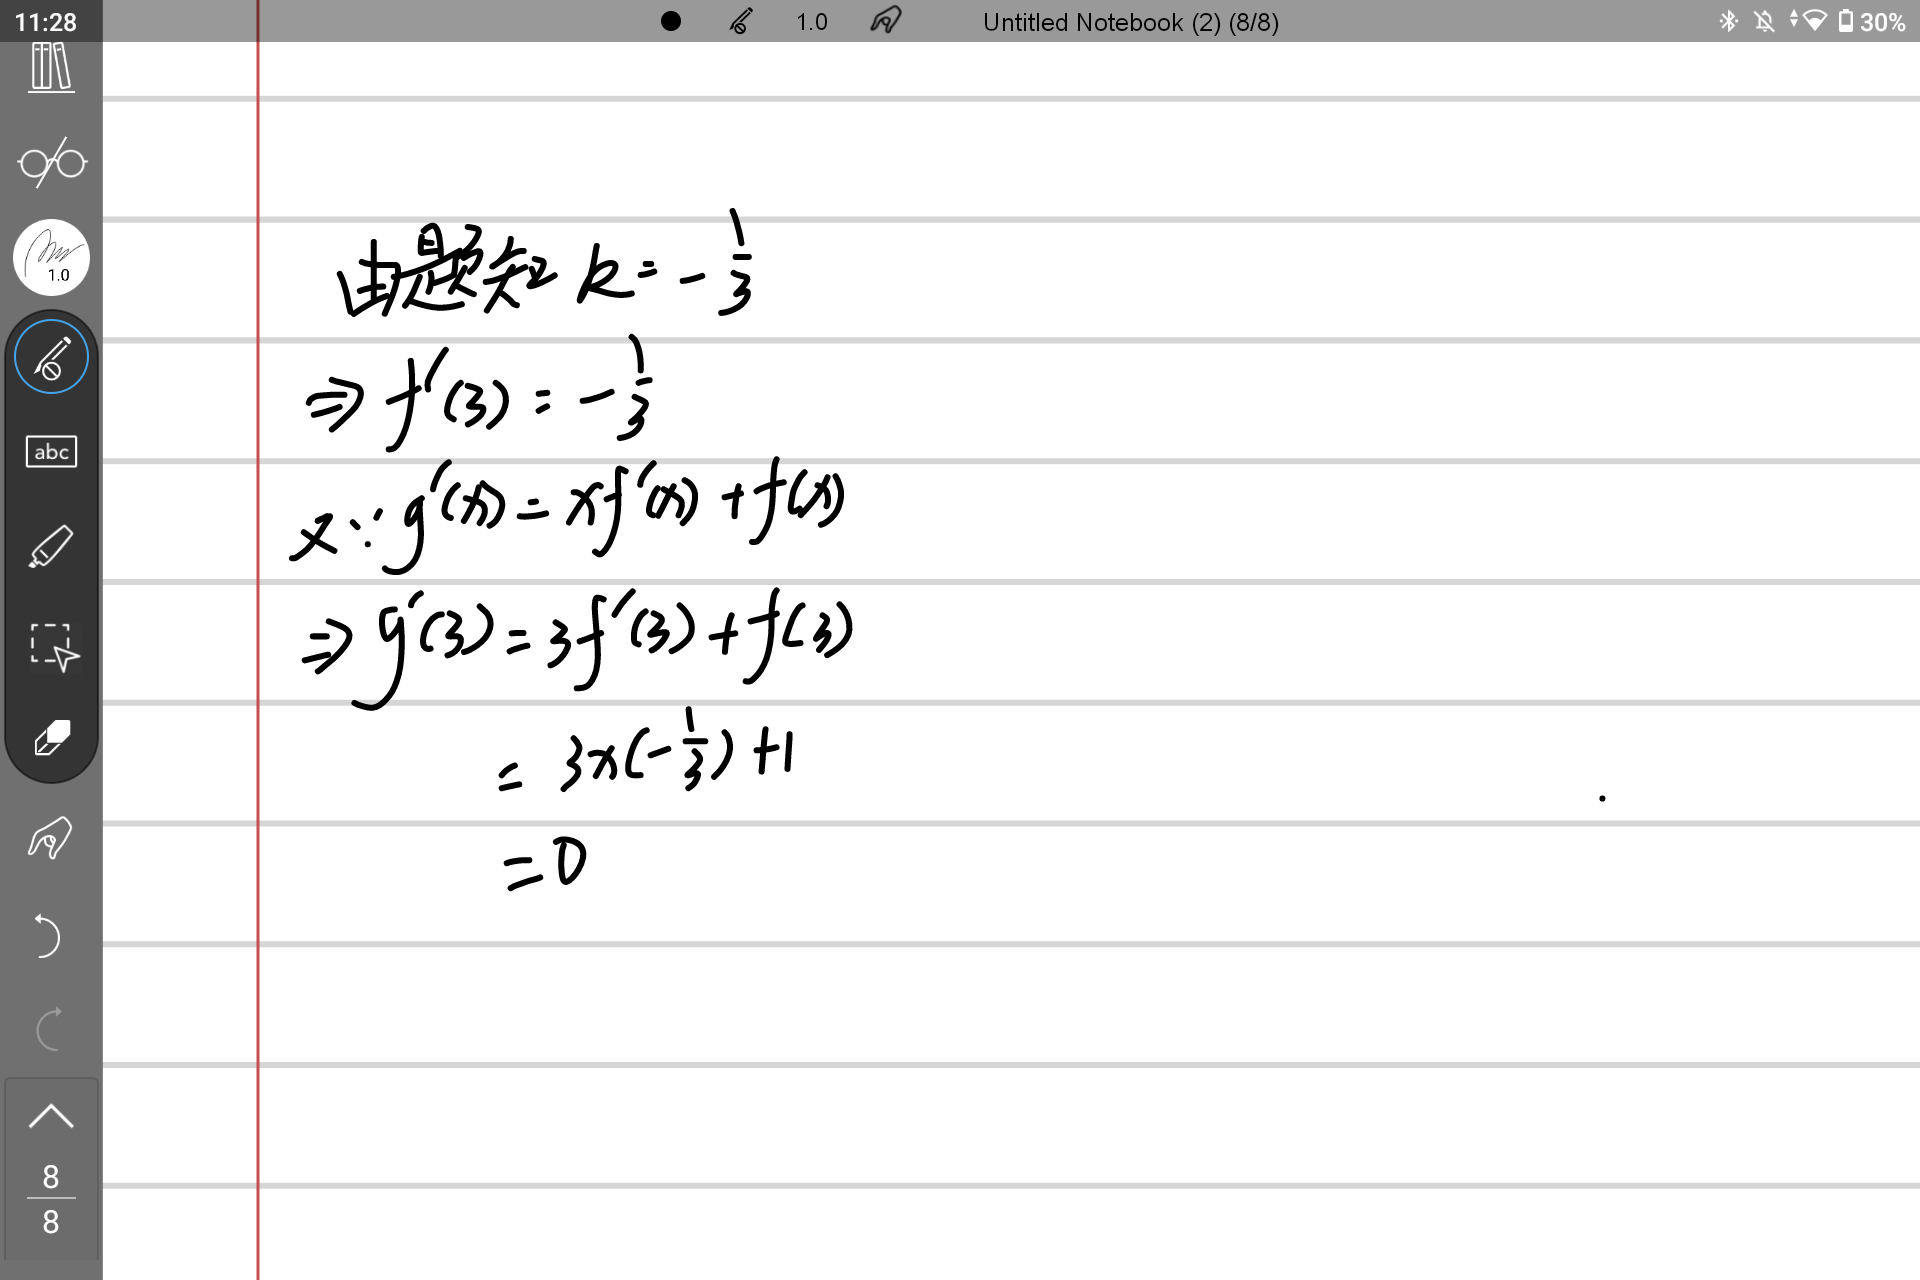 11:28
1.0
Untitled Notebook (2) (8/8)
30%
1.0
abc
由题知 k = -1/3
⇒ f'(3) = -1/3
又∵ g'(x) = xf'(x) + f(x)
⇒ g'(3) = 3f'(3) + f(3)
= 3×(-1/3) +1
= 0
8
8